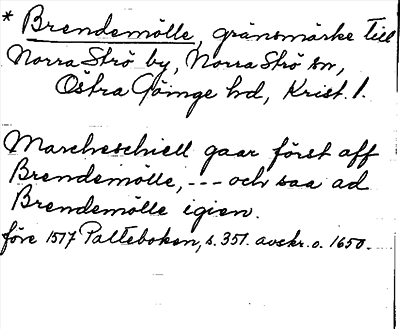 * Brendemölle, gränsmärke till
Norra Strö by, Norra Strö sn,
Östra Göinge hd, Krist. l.
Marcheschiell gaar först aff
Brendemölle, --- och saa ad
Brendemölle igien.
före 1517 Palteboken, s. 351. avskr. o. 1650.